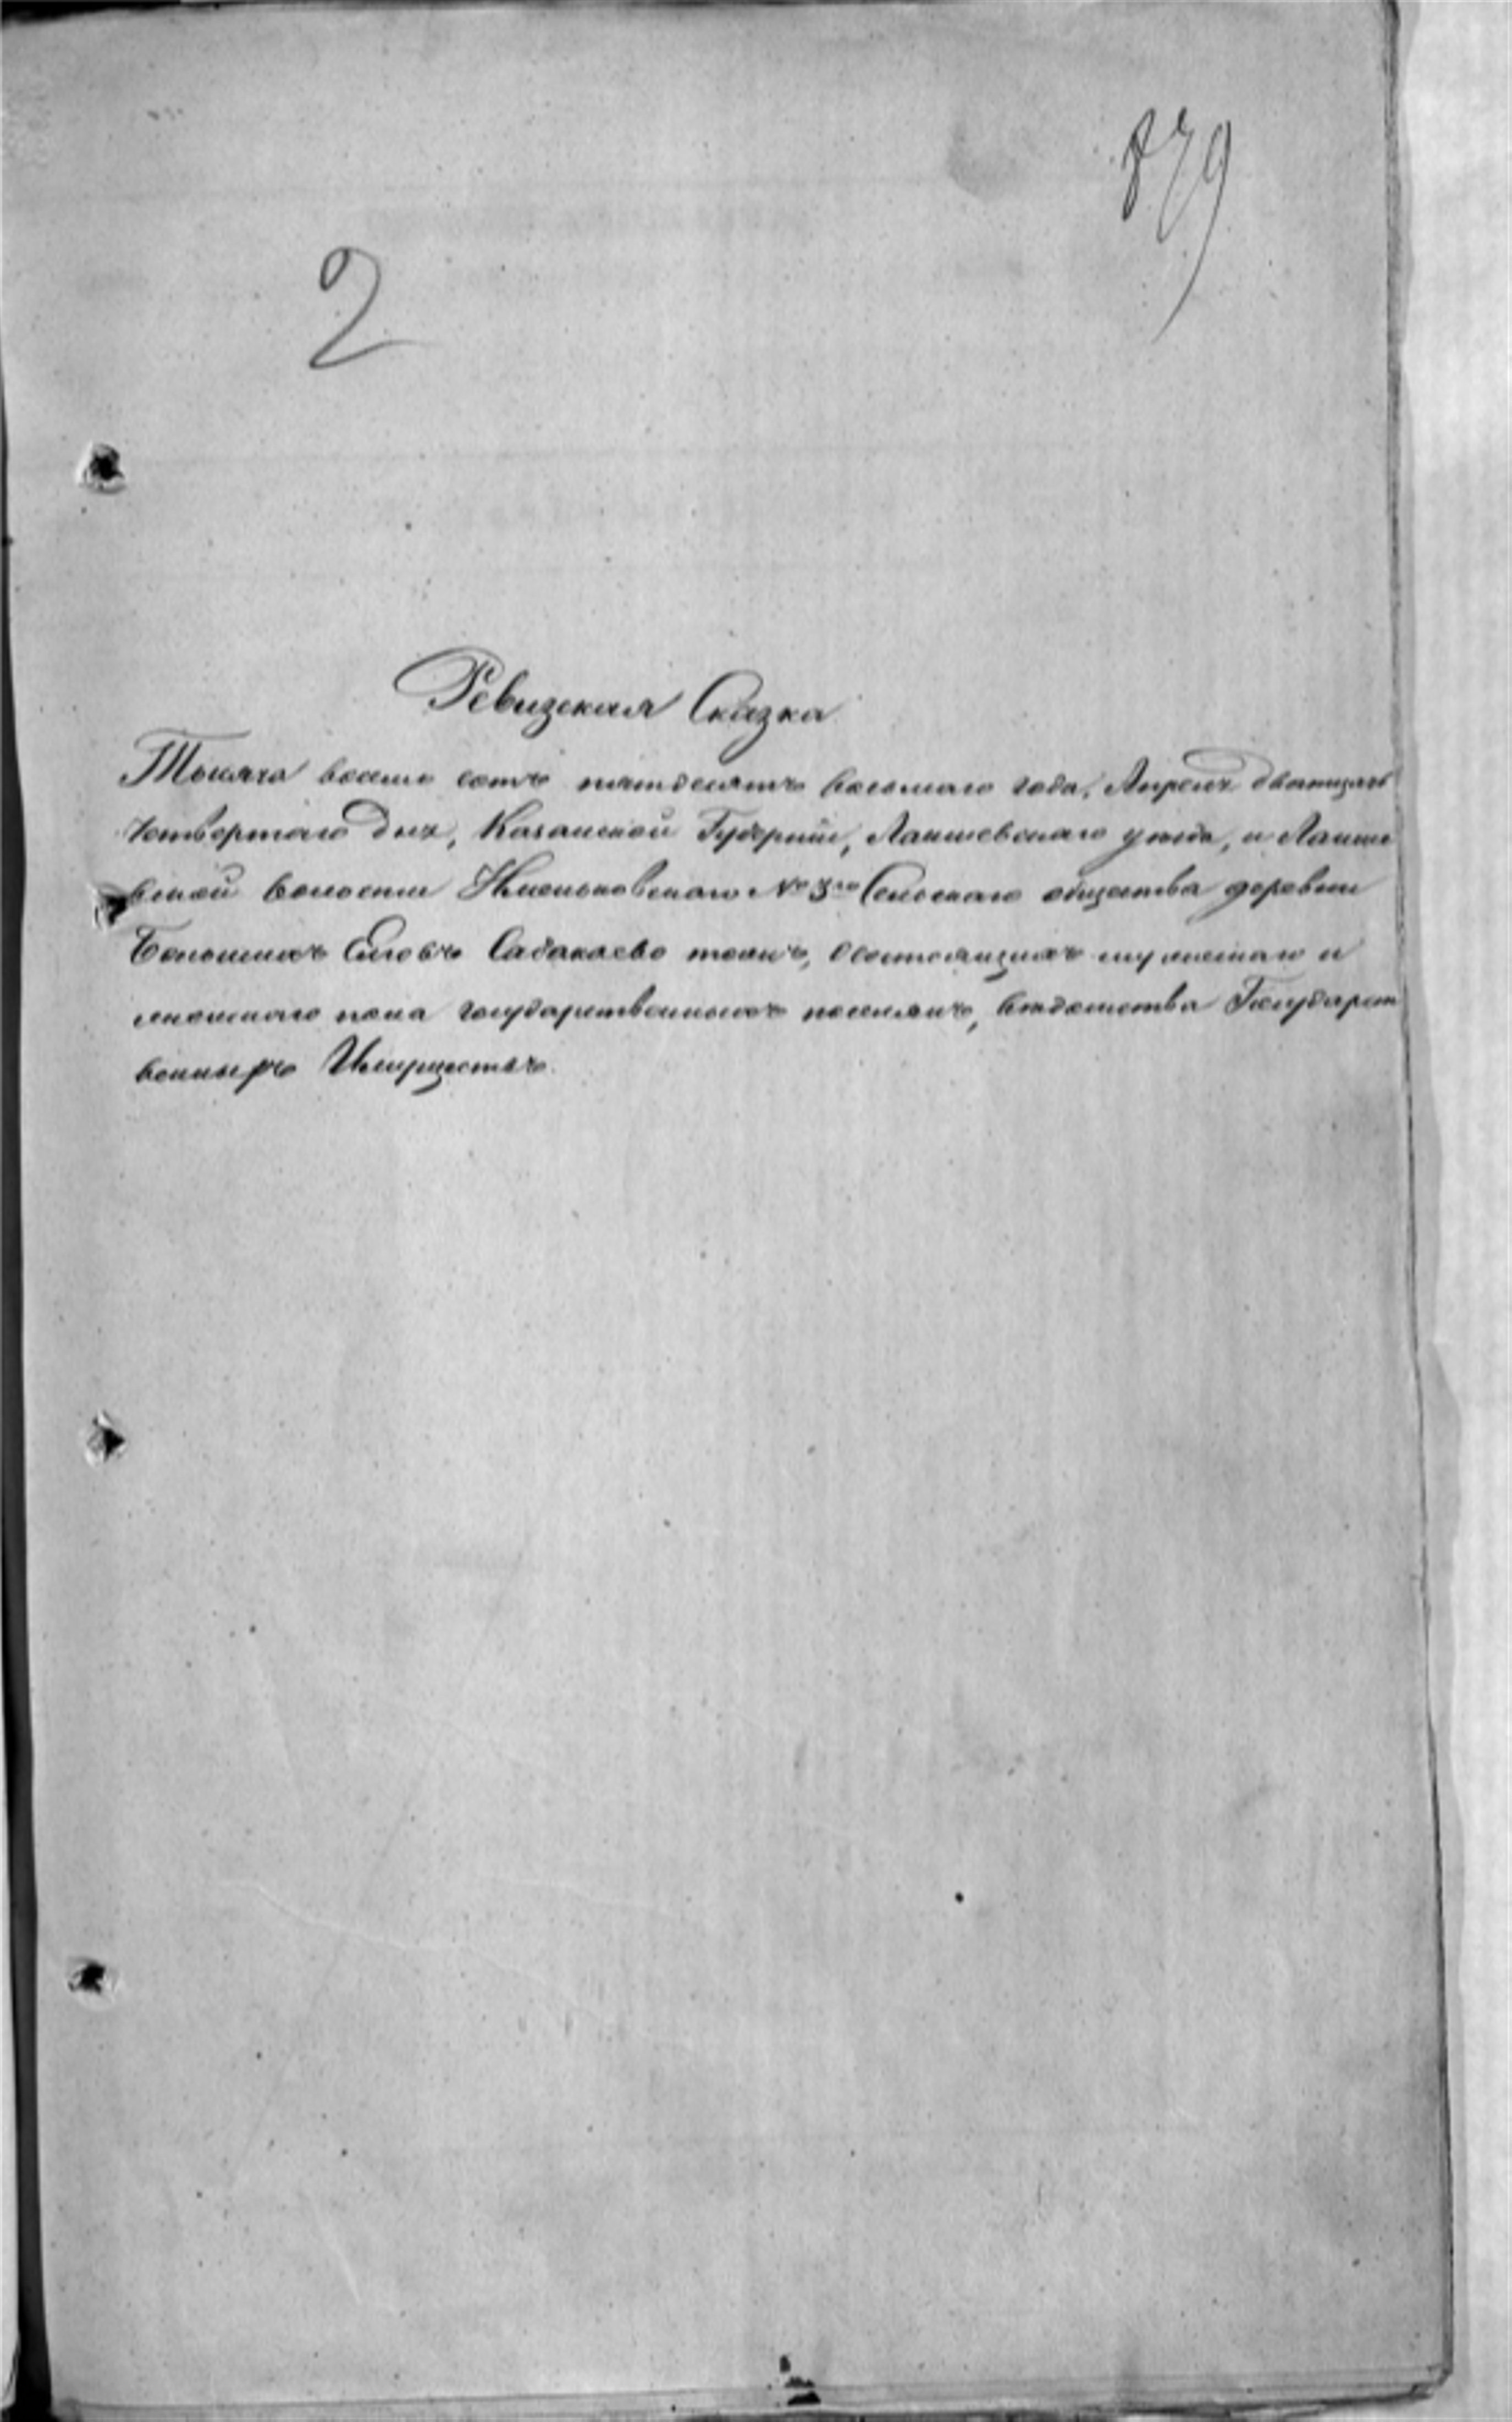 879
2
Ревизская Сказка
Тысяча восемь сотъ пятьдесятъ восьмаго года, Апреля дватцать
четвертаго дня, Казанской Губерніи, Лаишевскаго уѣзда, и Лаише
вской волости № 3го Сельскаго общества деревни
Большихъ Елговъ Сабакаево тожъ, Состоящихъ мужескаго и
женскаго пола государственныхъ поселянъ, вѣдомства Государст
венныхъ Имуществъ.